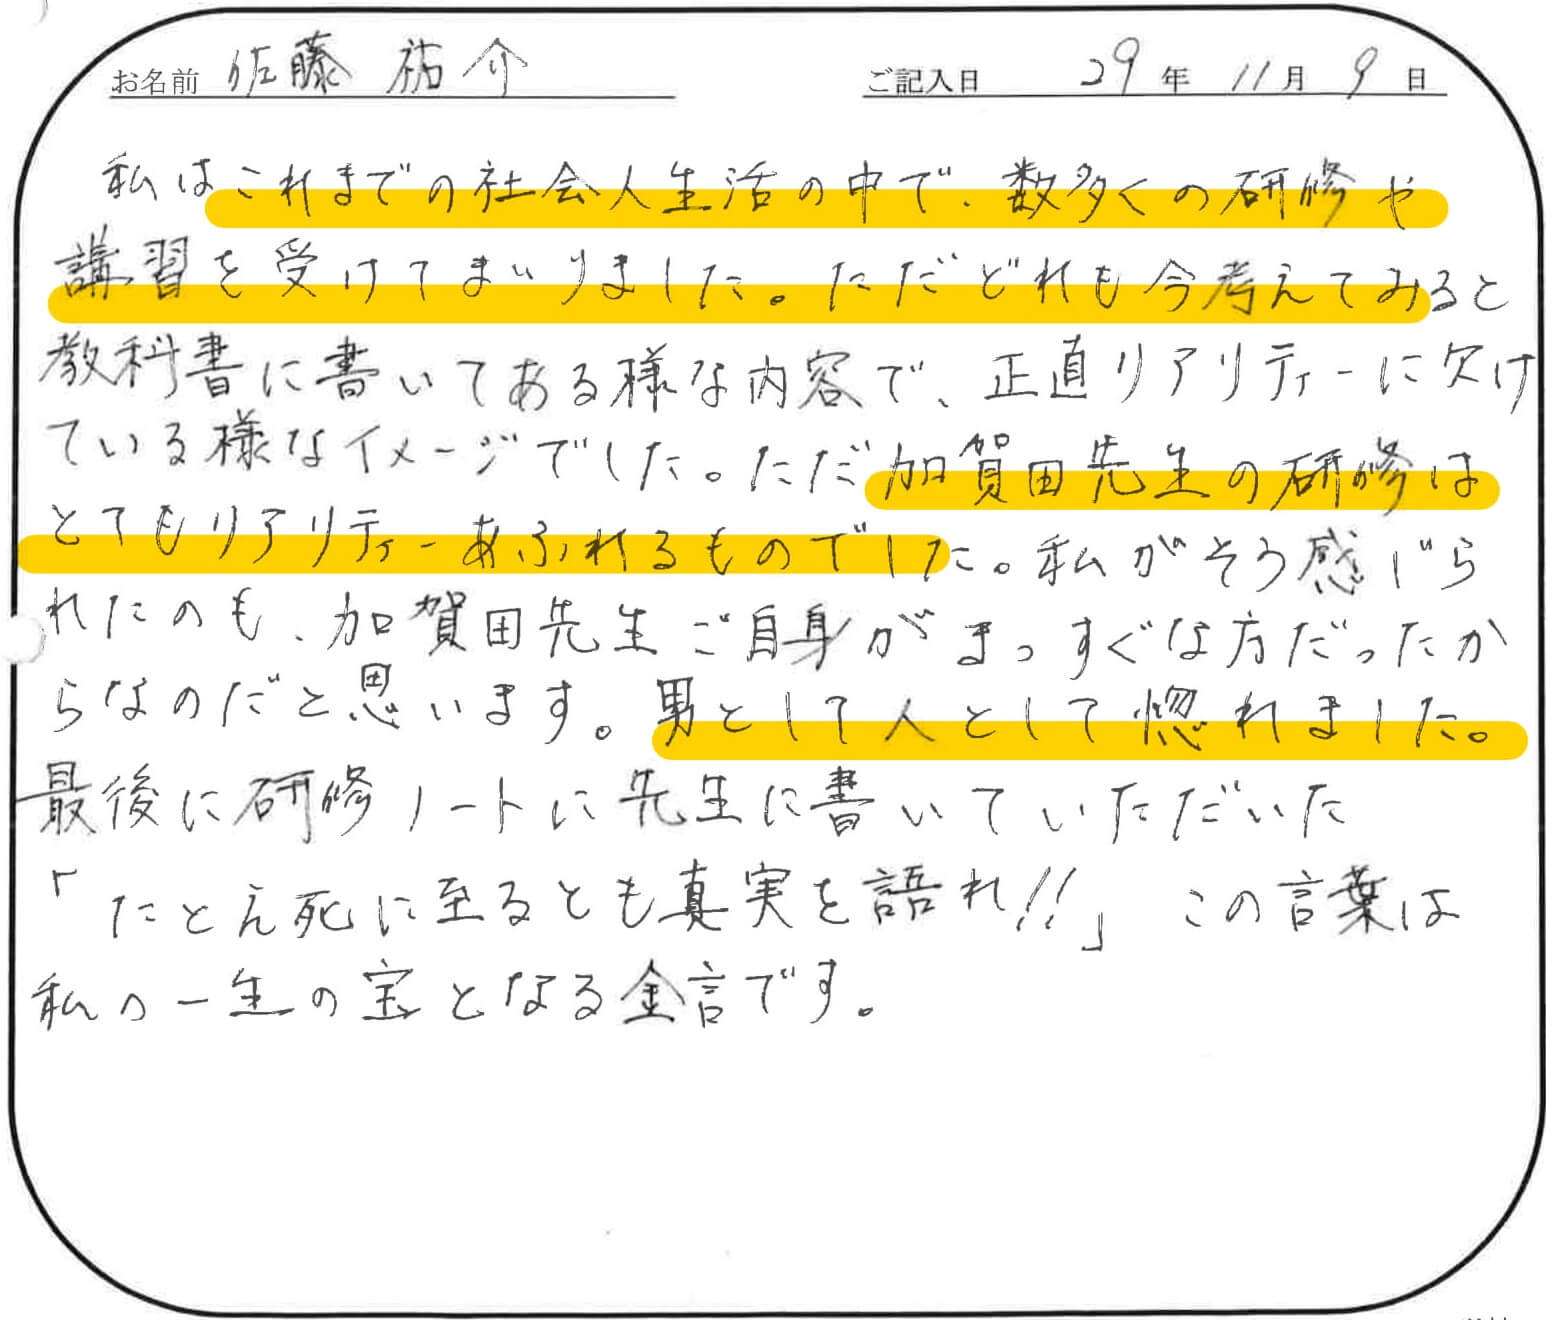 お名前 佐藤 祐介 ご記入日 29年 11月 9日
私はこれまでの社会人生活の中で、数多くの研修や
講習を受けてまいりました。ただどれも今考えてみると
教科書に書いてある様な内容で、正直リアリティーに欠け
ている様なイメージでした。ただ加賀田先生の研修は
とてもリアリティーあふれるものでした。私がそう感じら
れたのも、加賀田先生ご自身がまっすぐな方だったか
らなのだと思います。男として人として惚れました。
最後に研修ノートに先生に書いていただいた
「たとえ死に至るとも真実を語れ!!」この言葉は
私の一生の宝となる金言です。